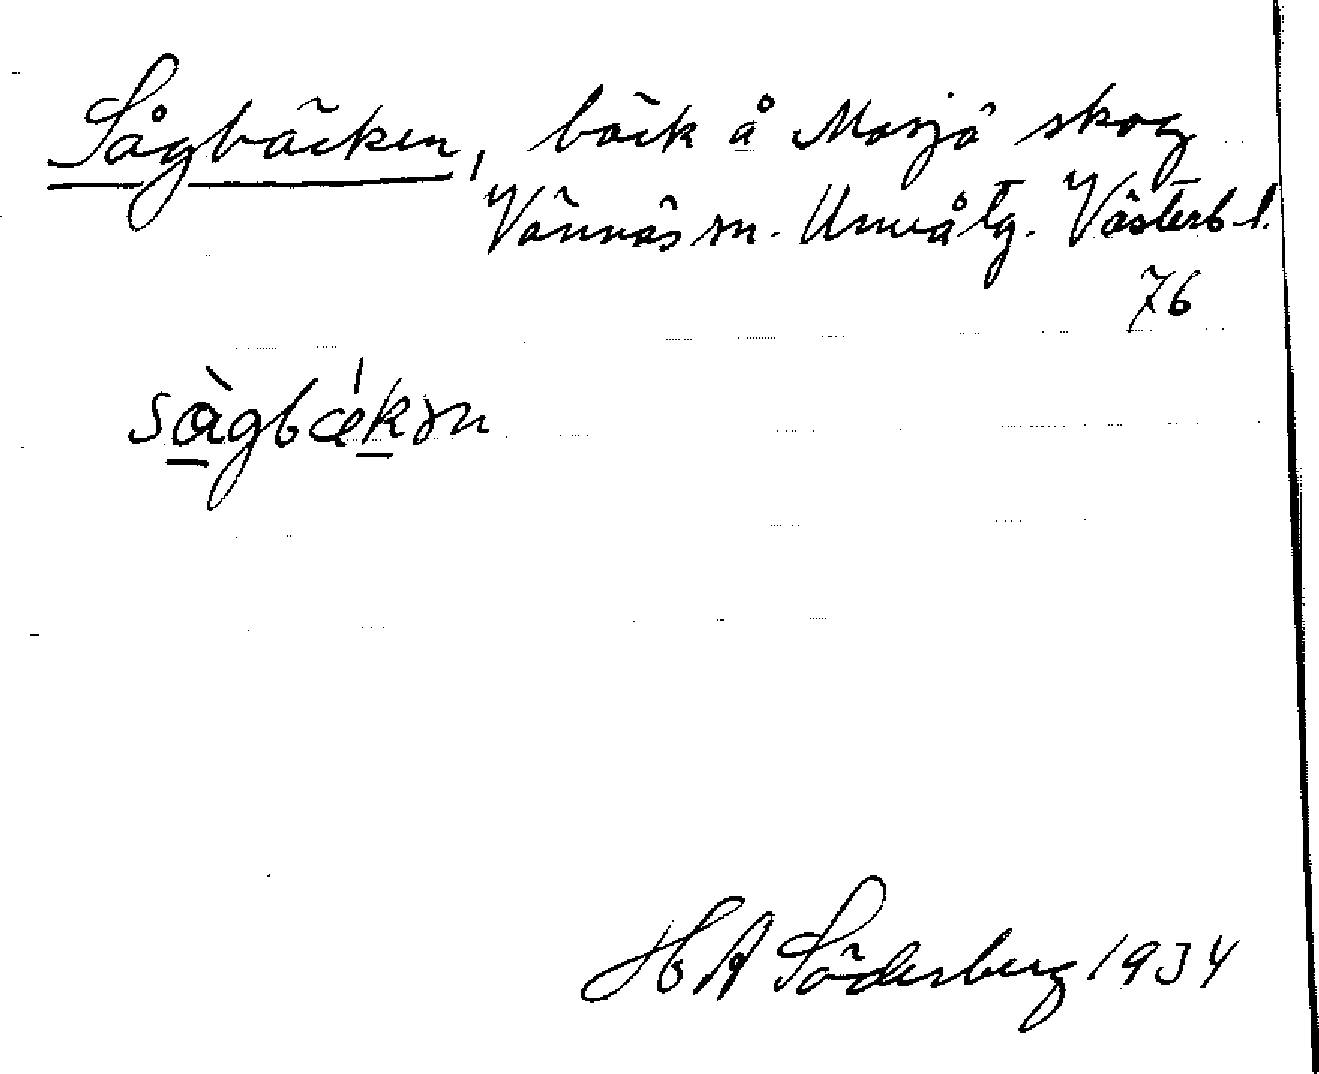 Sågbäcken, bäck å Mosjö skog
Vännäs sn. Umeå tg. Västerb l.
76
sàgbækən
H A Söderberg 1934